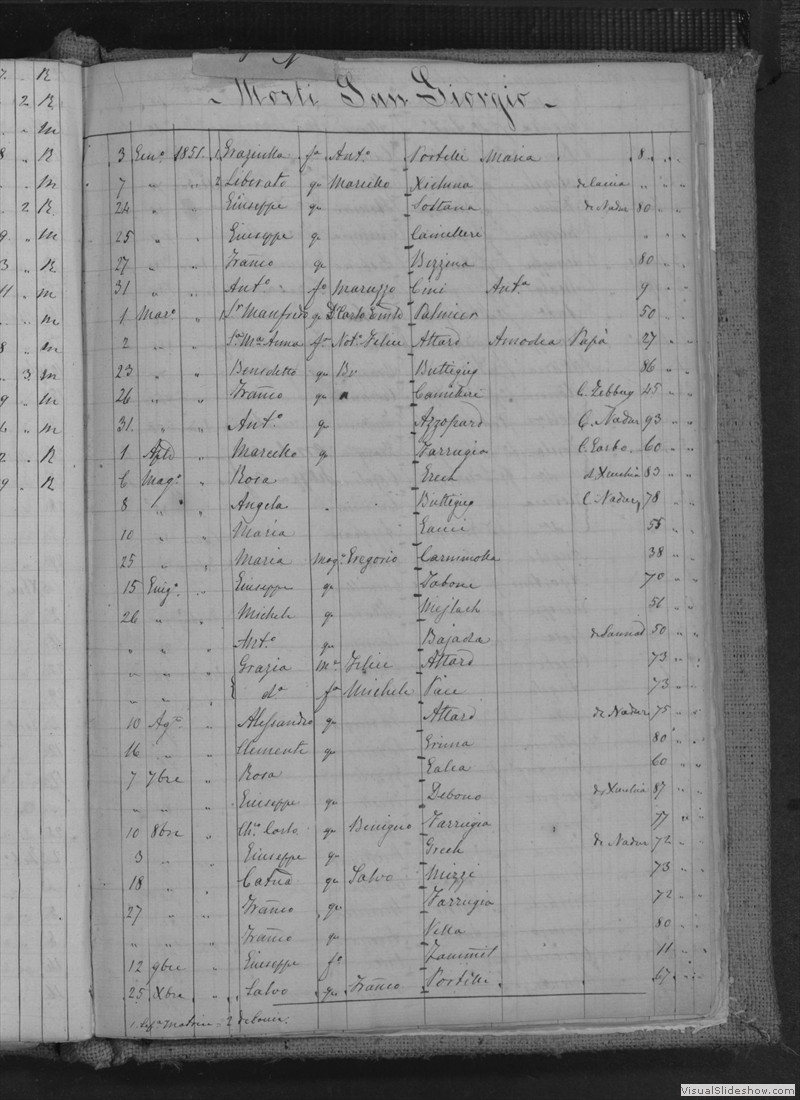 7. " R
. 2 R
. . m
8 " R
. . m
. 2 R
9 " m
3 " R
11 . m
. . m
8 " m
. 3 m
9 " m
6 " m
2 . R
9 . R
- Morti San Giorgio -
3 Genº 1851. 1 Graziulla fª Antº Portelli Maria 8 " "
7 " " 2 Liberato qu Marcello Xicluna " "
24 " " Giuseppe qu Soltana de Nadur 80 " "
25 " " Giuseppe qu Camilleri " "
27 " " Franco qu Bezzina 80 " "
31 " " Antº fº Maruzzo Cini Antª 9 " "
1 Marº " Sr Manfredo qu Dr Carlo Palmier 50
2 " " Sra Ma Anna fª Notº Felice Attard Amodea Papà 27 " "
23 " " Benedetto qu Bv Buttigieg 86 " "
26 " " Franco qu Camilleri C. Zebbug 45 " "
31. " " Antº qu Azzopard C. Nadur 93 " "
1 Aple " Marcello qu Farrugia C. Garbo. 60 " "
6 Magº " Rosa Grech d Xeuchia 83 " "
8 " " Angela . Buttigieg C. Nadur 78 " "
10 " " Maria Gauci 55 " "
25 " " Maria mogº Gregorio 38 " "
15 Giugº " Giuseppe qu Tabone 70 " "
26 " " Michele qu Mejlach 56 " "
" " " Antº qu Bajada de Sannat 50 " "
" " " Grazia mª Felice Attard 73 " "
" " " dª fª Michele Pace 73 " "
10 Agº " Alessandro qu Attard de Nadur 75 " "
16 " " Clemente qu Grima 80 " "
7 7bre " Rosa Galea 60 " "
" " " Giuseppe qu Debono de Xeuchia 87 " "
10 8bre " Carlo qu Benigno Farrugia 77 " "
3 " " Giuseppe qu Grech de Nadur 72 " "
18 " " Catña qu Salvo Mizzi 73 " "
27 " " Franco qu Farrugia 72 " "
" " " Franco qu Vella 80 " "
12 9bre " Giuseppe fº Zammit 11 " "
25 Xbre " Salvo qu Franco Portelli 67 " "
VisualSlideshow.com